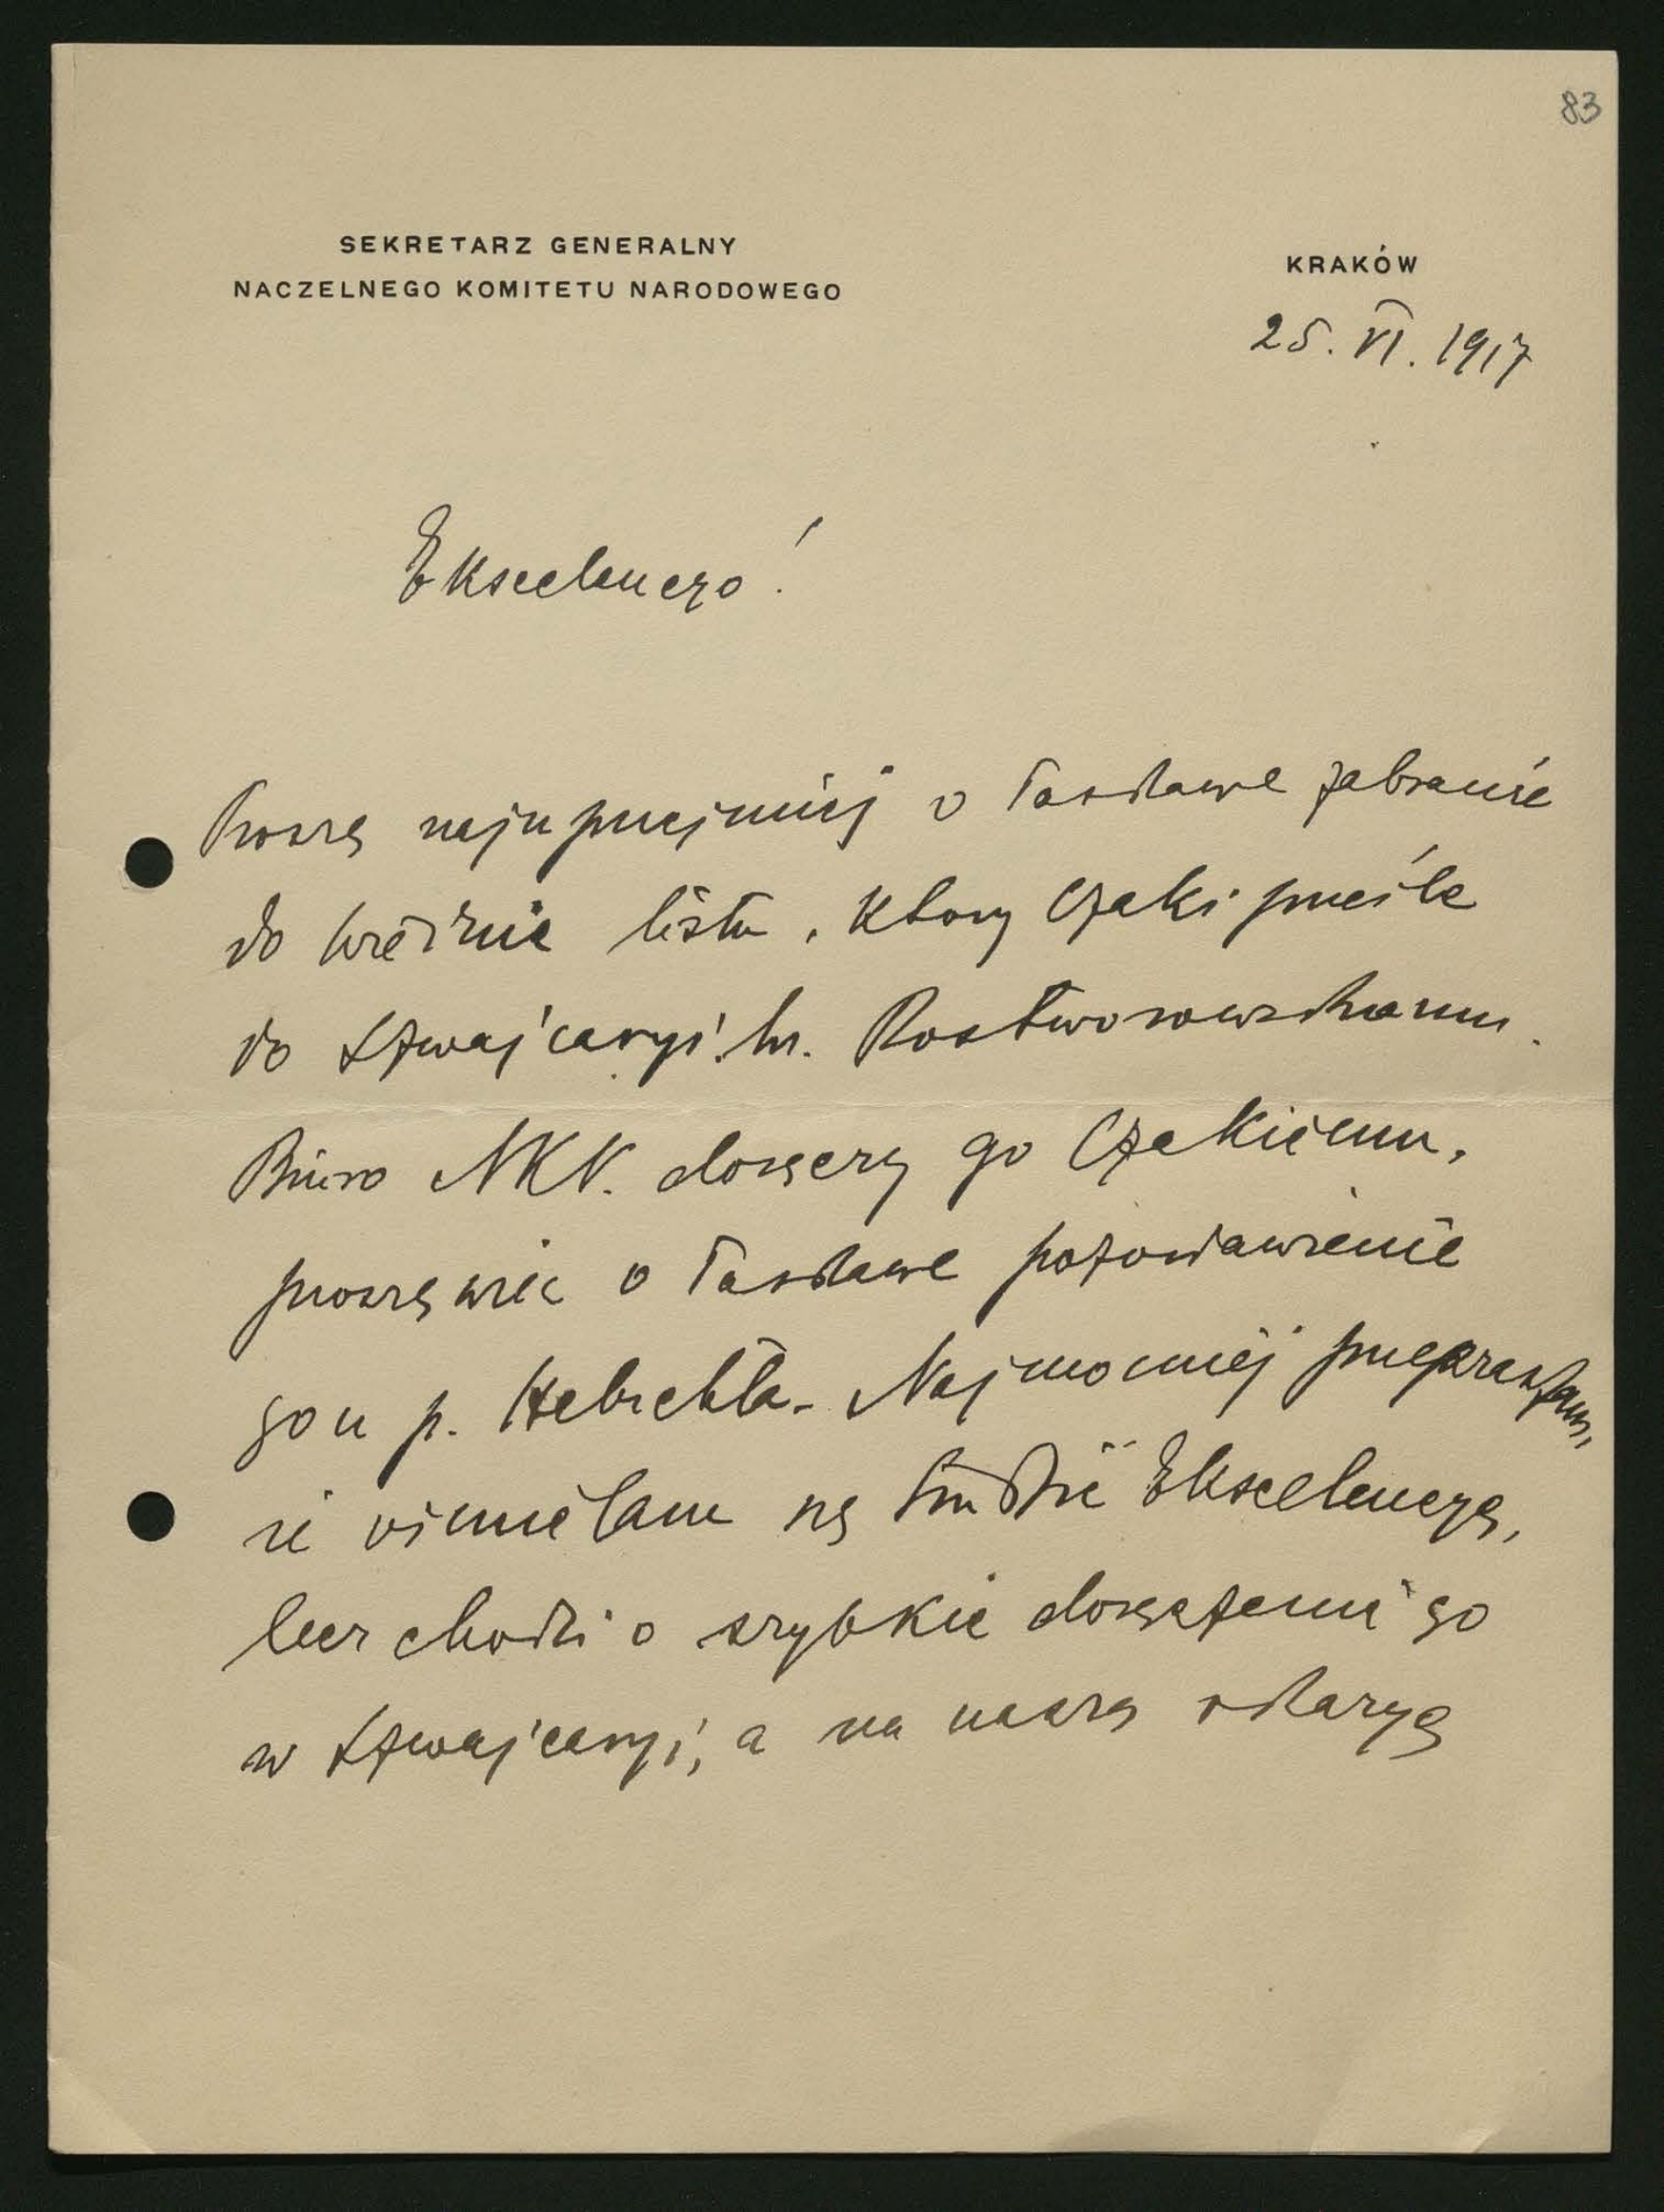 83
SEKRETARZ GENERALNY
NACZELNEGO KOMITETU NARODOWEGO
KRAKÓW
25. VI. 1917
Ekscelencyo!
Proszę najuprzejmiej o łaskawe zabranie
do Wiednia listu, który Czaki prześle
do Szwajcaryi hr. Rostworowskiemu.
Biuro NKN. doręczy go Czakiemu,
proszę więc o łaskawe pozostawienie
go u p. Hebrekta. Najmocniej przepraszam,
że ośmielam się trudzić Ekscelencyę,
lecz chodzi o szybkie doręczenie go
w Szwajcaryi, a na naszą stacyę